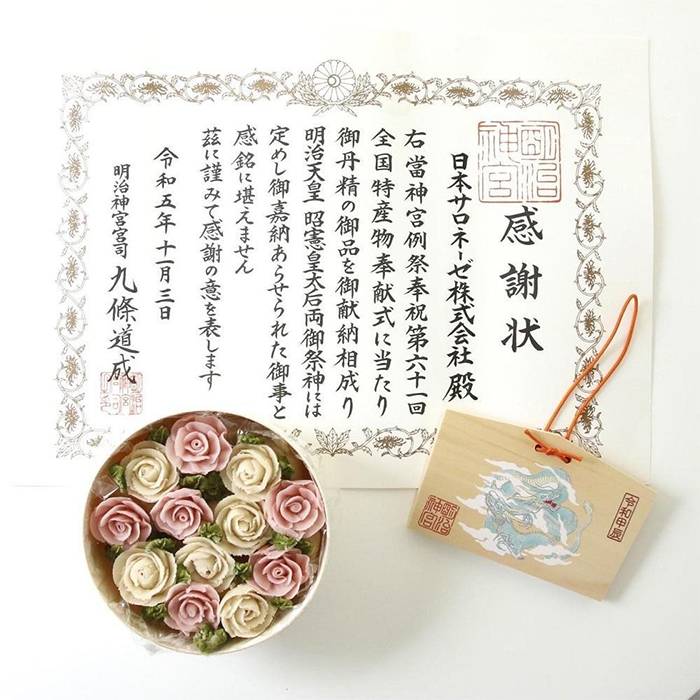 明治神宮
感謝状
日本サロネーゼ株式会社 殿
右當神宮例祭奉祝第六十一回
全国特産物奉献式に当たり
御丹精の御品を御献納相成り
明治天皇 昭憲皇太后両御祭神には
定めし御嘉納あらせられた御事と
感銘に堪えません
茲に謹みて感謝の意を表します
令和五年十一月三日
明治神宮宮司 九條道成
明治神宮
令和甲辰